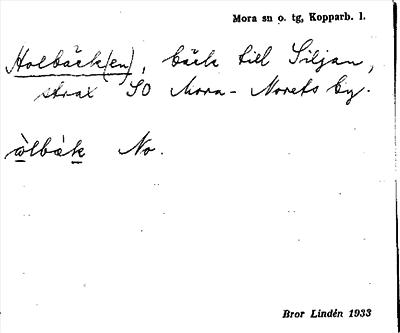 Mora sn o. tg, Kopparb. l.
Holbäck(en), bäck till Siljan,
strax SO Mora-Morets by.
òlbàk No.
Bror Lindén 1933